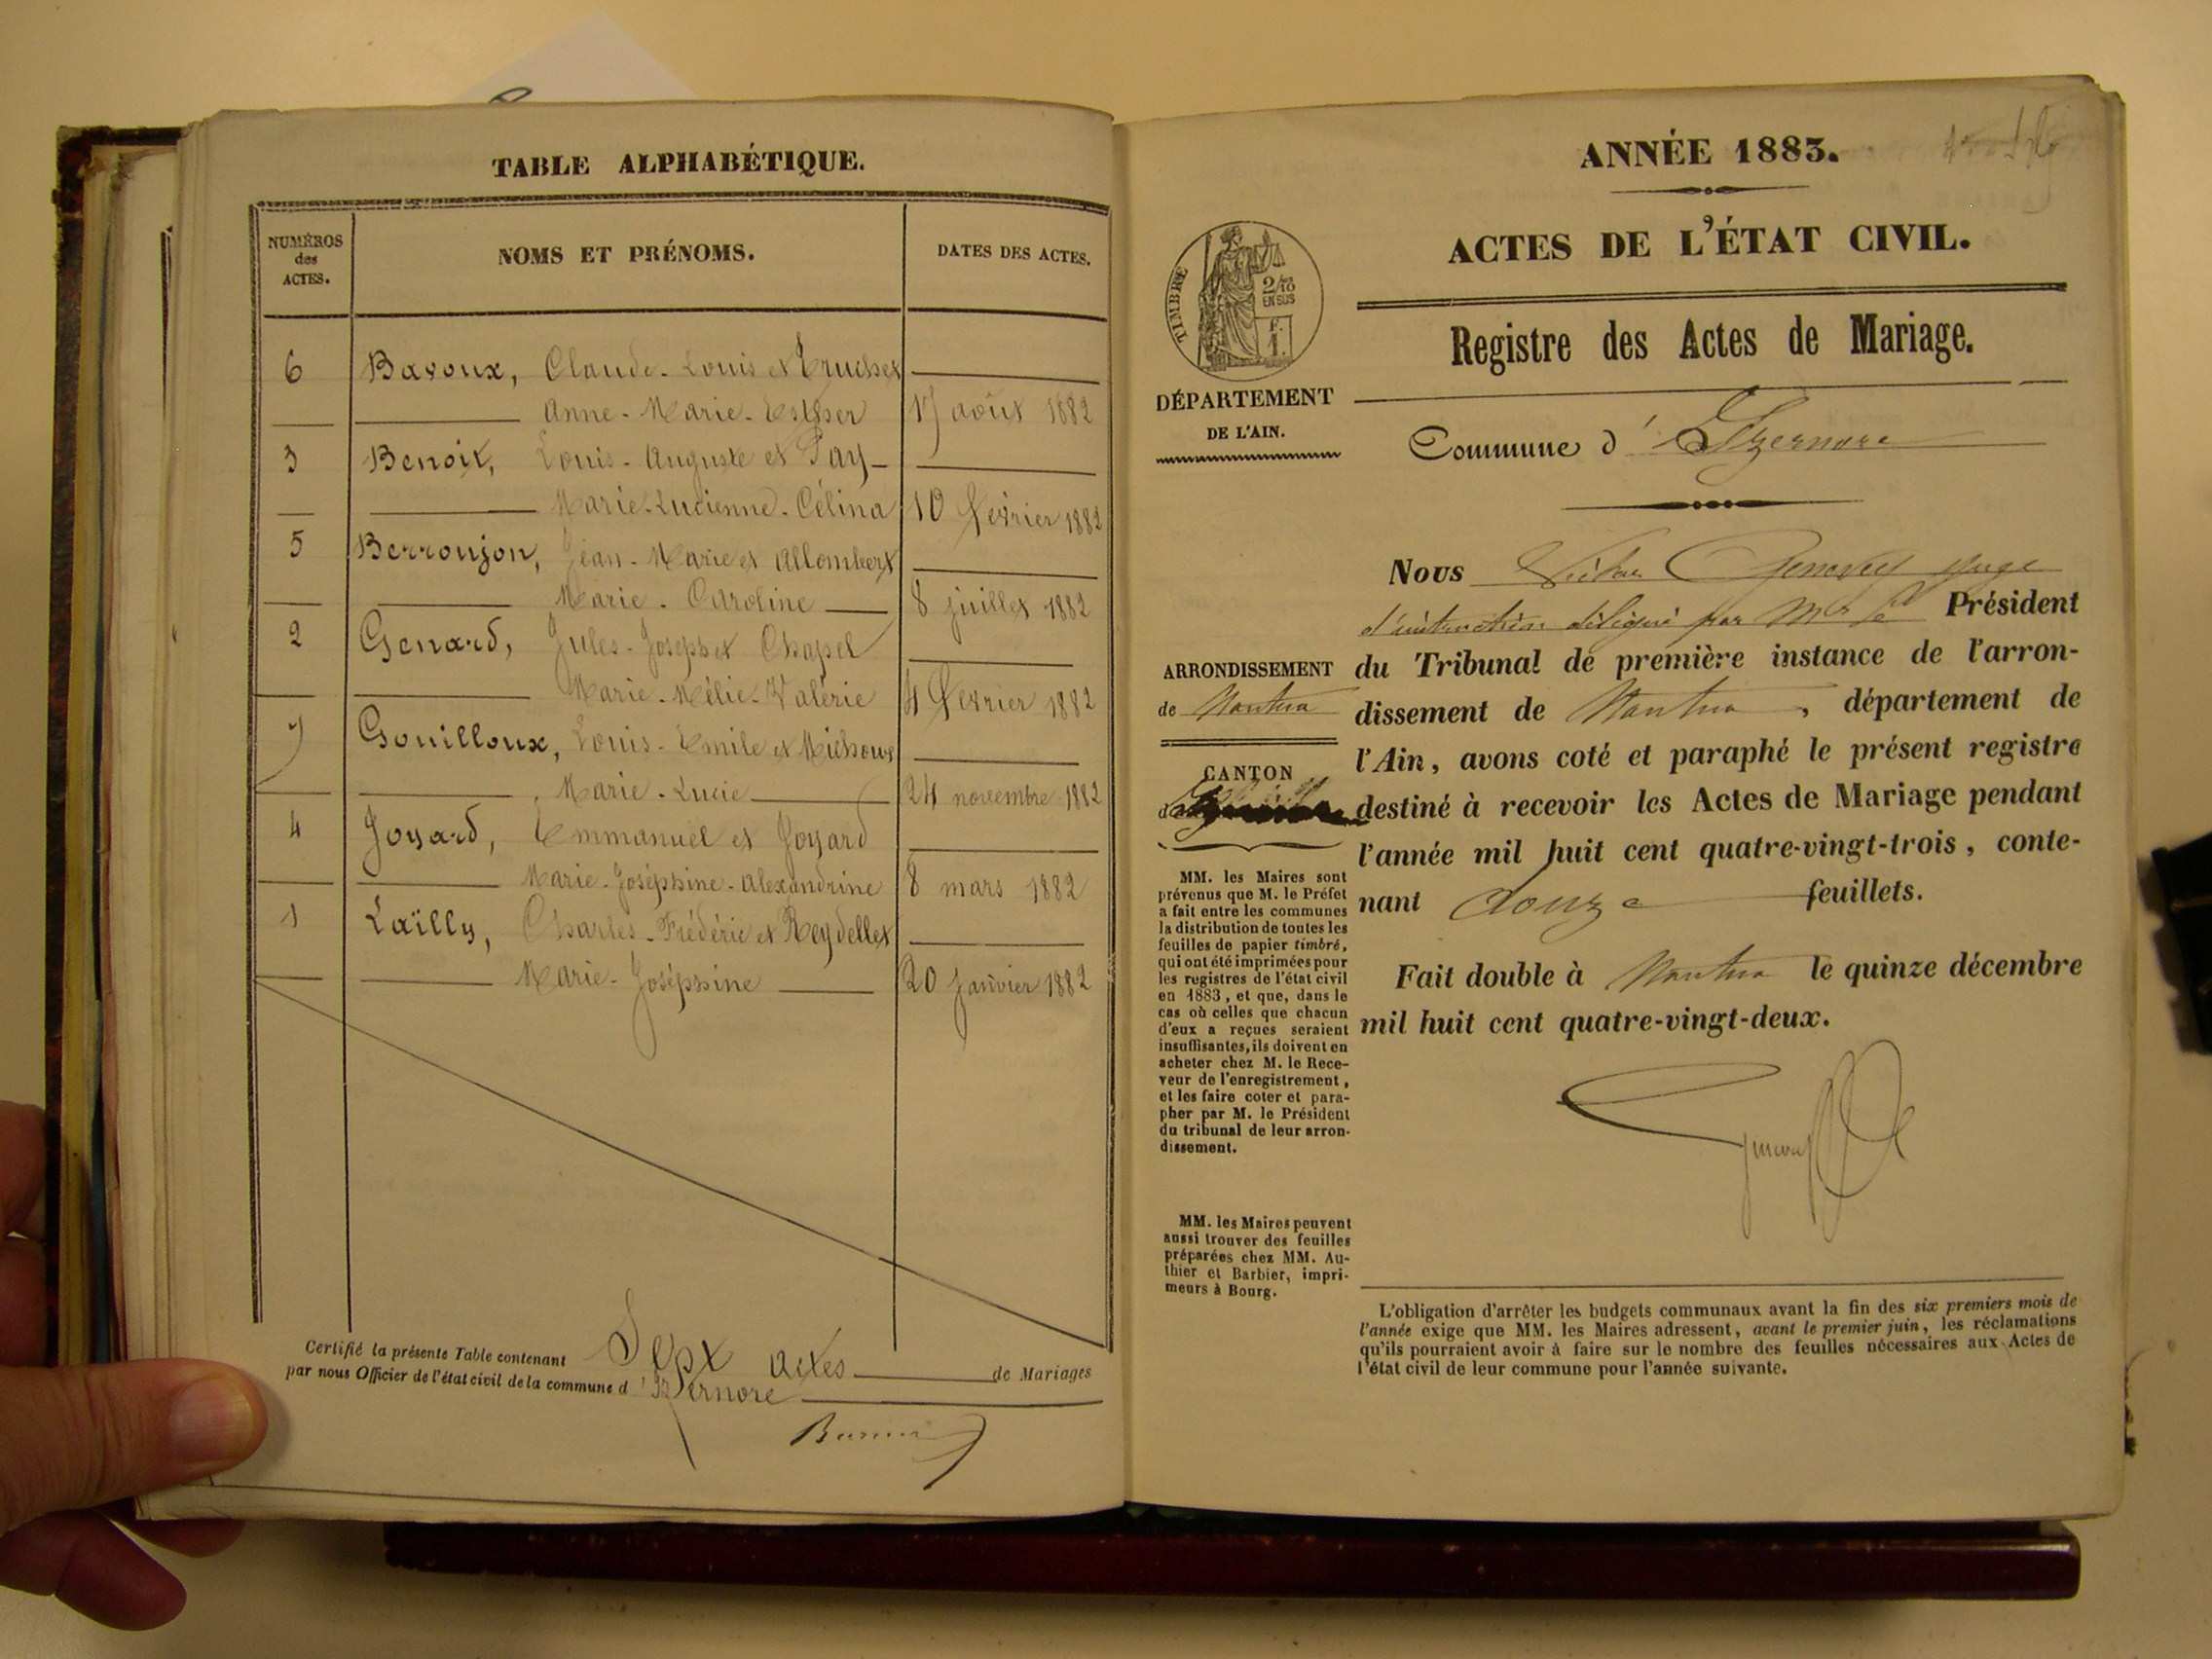 TABLE ALPHABÉTIQUE.
NUMÉROS des ACTES.
NOMS ET PRÉNOMS.
DATES DES ACTES.
6 Bavoux, Claude-Louis et Truchet
Anne-Marie-Esther 17 août 1882
3 Benoit, Louis-Auguste et Pay-
Marie-Lucienne-Célina 10 février 1882
5 Berroujon, Jean-Marie et Allombert
Marie-Caroline 8 juillet 1882
2 Genard, Jules-Joseph et Chapel
Marie-Mélie-Valérie 4 février 1882
7 Gouilloux, Louis-Emile et
Marie-Lucie 24 novembre 1882
4 Joyard, Emmanuel et Joyard
Marie-Joséphine-Alexandrine 8 mars 1882
1 Laïlly, Charles-Frédéric et Reydellet
Marie-Joséphine 20 janvier 1882
Certifié la présente Table contenant Sept actes de Mariages
par nous Officier de l'état civil de la commune d'Izernore
ANNÉE 1883.
ACTES DE L'ÉTAT CIVIL.
TIMBRE
2/10
EN SUS
1 f.
Registre des Actes de Mariage.
DÉPARTEMENT
DE L'AIN.
Commune d'Izernore
Nous Genevey juge
d'instruction délégué par Mr le Président
du Tribunal de première instance de l'arron-
dissement de Nantua, département de
l'Ain, avons coté et paraphé le présent registre
destiné à recevoir les Actes de Mariage pendant
l'année mil huit cent quatre-vingt-trois, conte-
nant douze feuillets.
Fait double à Nantua le quinze décembre
mil huit cent quatre-vingt-deux.
ARRONDISSEMENT
de Nantua
CANTON
MM. les Maires sont
prévenus que M. le Préfet
a fait entre les communes
la distribution de toutes les
feuilles de papier timbré,
qui ont été imprimées pour
les registres de l'état civil
en 1883, et que, dans le
cas où celles que chacun
d'eux a reçues seraient
insuffisantes, ils doivent en
acheter chez M. le Rece-
veur de l'enregistrement,
et les faire coter et para-
pher par M. le Président
du tribunal de leur arron-
dissement.
MM. les Maires peuvent
aussi trouver des feuilles
préparées chez MM. Au-
thier et Barbier, impri-
meurs à Bourg.
L'obligation d'arrêter les budgets communaux avant la fin des six premiers mois de
l'année exige que MM. les Maires adressent, avant le premier juin, les réclamations
qu'ils pourraient avoir à faire sur le nombre des feuilles nécessaires aux Actes de
l'état civil de leur commune pour l'année suivante.